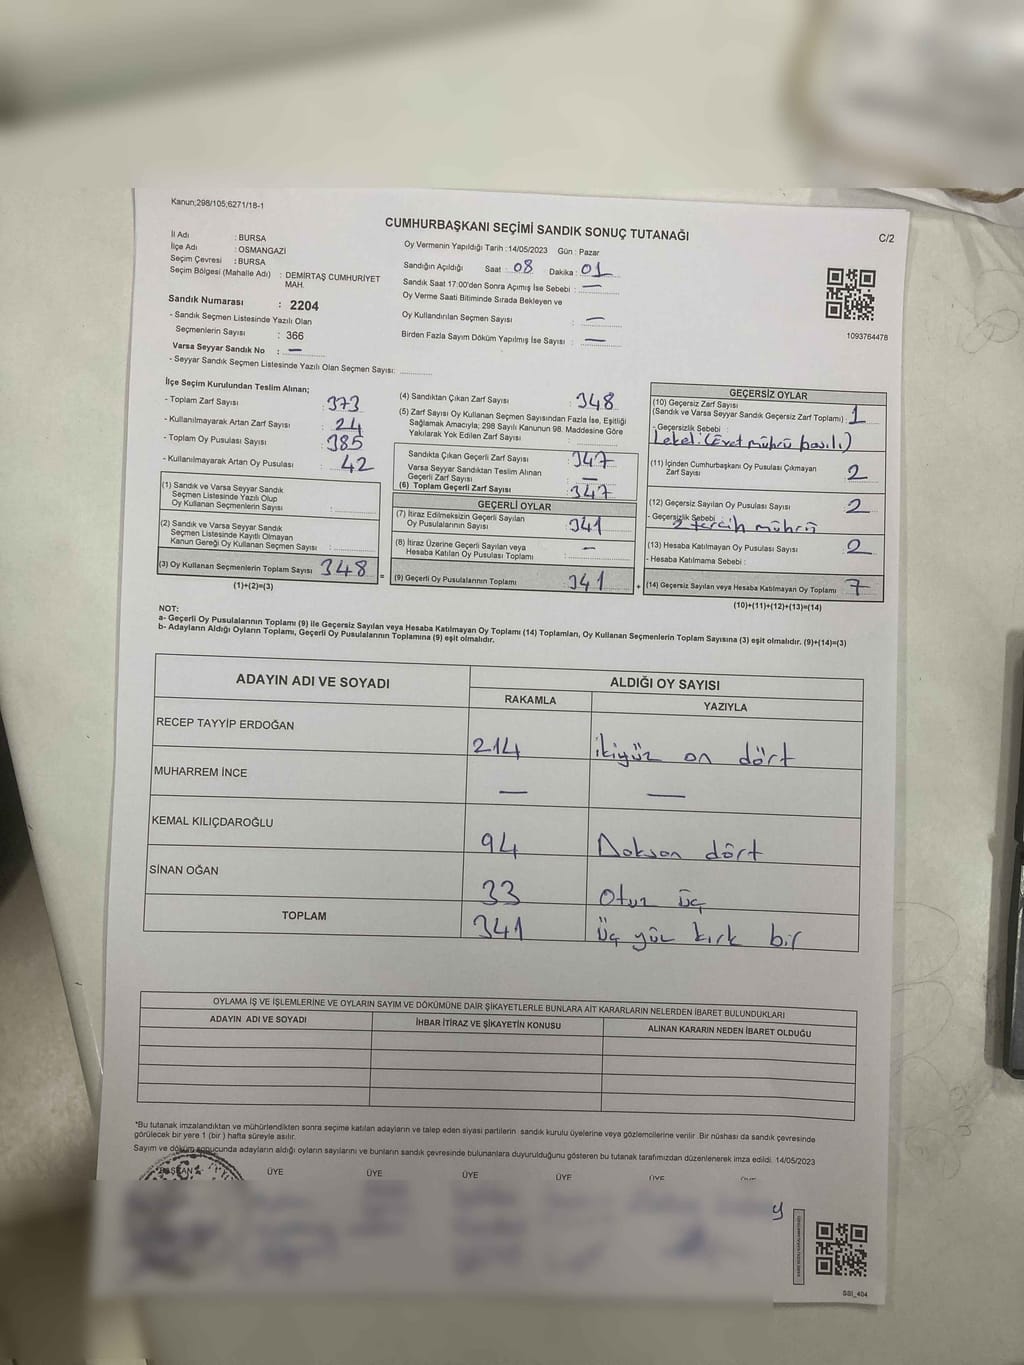 Kanun;298/105;6271/18-1
CUMHURBAŞKANI SEÇİMİ SANDIK SONUÇ TUTANAĞI
C/2
İl Adı : BURSA
İlçe Adı : OSMANGAZİ
Seçim Çevresi : BURSA
Seçim Bölgesi (Mahalle Adı) : DEMİRTAŞ CUMHURİYET
MAH.
Sandık Numarası : 2204
- Sandık Seçmen Listesinde Yazılı Olan
Seçmenlerin Sayısı : 366
Varsa Seyyar Sandık No : —
- Seyyar Sandık Seçmen Listesinde Yazılı Olan Seçmen Sayısı:
Oy Vermenin Yapıldığı Tarih : 14/05/2023 Gün : Pazar
Sandığın Açıldığı Saat : 08 Dakika : 01
Sandık Saat 17:00'den Sonra Açımış İse Sebebi : —
Oy Verme Saati Bitiminde Sırada Bekleyen ve
Oy Kullandırılan Seçmen Sayısı : —
Birden Fazla Sayım Döküm Yapılmış İse Sayısı : —
1093764478
İlçe Seçim Kurulundan Teslim Alınan;
- Toplam Zarf Sayısı : 373
- Kullanılmayarak Artan Zarf Sayısı : 24
- Toplam Oy Pusulası Sayısı : 385
- Kullanılmayarak Artan Oy Pusulası : 42
(1) Sandık ve Varsa Seyyar Sandık
Seçmen Listesinde Yazılı Olup
Oy Kullanan Seçmenlerin Sayısı :
(2) Sandık ve Varsa Seyyar Sandık
Seçmen Listesinde Kayıtlı Olmayan
Kanun Gereği Oy Kullanan Seçmen Sayısı :
(3) Oy Kullanan Seçmenlerin Toplam Sayısı 348
(1)+(2)=(3)
(4) Sandıktan Çıkan Zarf Sayısı : 348
(5) Zarf Sayısı Oy Kullanan Seçmen Sayısından Fazla İse, Eşitliği
Sağlamak Amacıyla; 298 Sayılı Kanunun 98. Maddesine Göre
Yakılarak Yok Edilen Zarf Sayısı :
Sandıkta Çıkan Geçerli Zarf Sayısı : 347
Varsa Seyyar Sandıktan Teslim Alınan
Geçerli Zarf Sayısı : —
(6) Toplam Geçerli Zarf Sayısı : 347
GEÇERLİ OYLAR
(7) İtiraz Edilmeksizin Geçerli Sayılan
Oy Pusulalarının Sayısı : 341
(8) İtiraz Üzerine Geçerli Sayılan veya
Hesaba Katılan Oy Pusulası Toplamı : —
= (9) Geçerli Oy Pusulalarının Toplamı 341 +
GEÇERSİZ OYLAR
(10) Geçersiz Zarf Sayısı
(Sandık ve Varsa Seyyar Sandık Geçersiz Zarf Toplamı) : 1
- Geçersizlik Sebebi :
Lekeli (Evet mührü basılı)
(11) İçinden Cumhurbaşkanı Oy Pusulası Çıkmayan
Zarf Sayısı : 2
(12) Geçersiz Sayılan Oy Pusulası Sayısı : 2
- Geçersizlik Sebebi
2 tercih mührü
(13) Hesaba Katılmayan Oy Pusulası Sayısı : 2
- Hesaba Katılmama Sebebi :
(14) Geçersiz Sayılan veya Hesaba Katılmayan Oy Toplamı : 7
(10)+(11)+(12)+(13)=(14)
NOT:
a- Geçerli Oy Pusulalarının Toplamı (9) ile Geçersiz Sayılan veya Hesaba Katılmayan Oy Toplamı (14) Toplamları, Oy Kullanan Seçmenlerin Toplam Sayısına (3) eşit olmalıdır. (9)+(14)=(3)
b- Adayların Aldığı Oyların Toplamı, Geçerli Oy Pusulalarının Toplamına (9) eşit olmalıdır.
ADAYIN ADI VE SOYADI ALDIĞI OY SAYISI
RAKAMLA YAZIYLA
RECEP TAYYİP ERDOĞAN 214 ikiyüz on dört
MUHARREM İNCE — —
KEMAL KILIÇDAROĞLU 94 Doksan dört
SİNAN OĞAN 33 Otuz üç
TOPLAM 341 üç yüz kırk bir
OYLAMA İŞ VE İŞLEMLERİNE VE OYLARIN SAYIM VE DÖKÜMÜNE DAİR ŞİKAYETLERLE BUNLARA AİT KARARLARIN NELERDEN İBARET BULUNDUKLARI
ADAYIN ADI VE SOYADI İHBAR İTİRAZ VE ŞİKAYETİN KONUSU ALINAN KARARIN NEDEN İBARET OLDUĞU
*Bu tutanak imzalandıktan ve mühürlendikten sonra seçime katılan adayların ve talep eden siyasi partilerin sandık kurulu üyelerine veya gözlemcilerine verilir. Bir nüshası da sandık çevresinde
görülecek bir yere 1 (bir ) hafta süreyle asılır.
Sayım ve döküm sonucunda adayların aldığı oyların sayılarını ve bunların sandık çevresinde bulunanlara duyurulduğunu gösteren bu tutanak tarafımızdan düzenlenerek imza edildi. 14/05/2023
BAŞKAN ÜYE ÜYE ÜYE ÜYE ÜYE
SSI_404